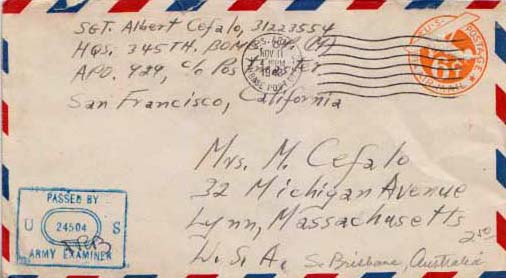 SGT. Albert Cefalo, 31223554
HQS. 345TH. BOMB
APO. 929, c/o Postmaster
San Francisco, California
NOV 11
U.S. POSTAGE
6¢
AIR MAIL
Mrs. M. Cefalo
32 Michigan Avenue
Lynn, Massachusetts
W. S. A.
2.50
So Brisbane, Australia
PASSED BY
U 24504 S
ARMY EXAMINER